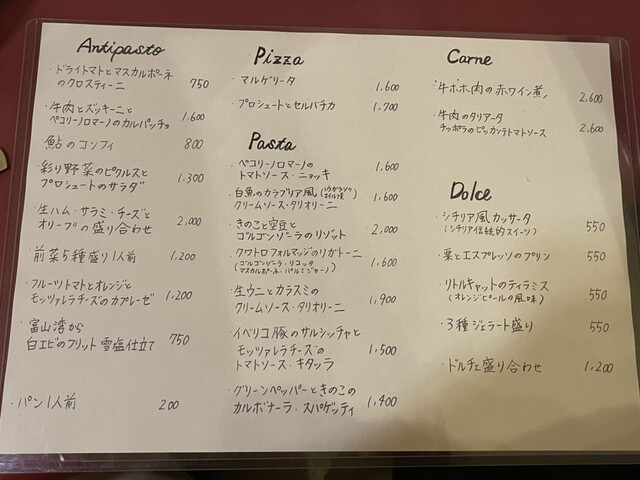 Antipasto
・ドライトマトとマスカルポーネ
のクロスティーニ 750
・牛肉とズッキーニと
ペコリーノロマーノのカルパッチョ 1,600
・鮎のコンフィ 800
・彩り野菜のピクルスと
プロシュートのサラダ 1,300
・生ハム・サラミ・チーズと
オリーブの盛り合わせ 2,000
・前菜5種盛り1人前 1,200
・フルーツトマトとオレンジと
モッツァレラチーズのカプレーゼ 1,200
・富山湾から
白エビのフリット 雪塩仕立て 750
・パン1人前 200
Pizza
・マルゲリータ 1,600
・プロシュートとセルバチカ 1,700
Pasta
・ペコリーノロマーノの
トマトソース・ニョッキ 1,600
・白魚のカラブリア風
クリームソース・タリオリーニ 1,600
・きのこと空豆と
ゴルゴンゾーラのリゾット 2,000
・クワトロフォルマッジのリガトーニ
(ゴルゴンゾーラ・リコッタ
マスカルポーネ・パルミジャーノ) 1,600
・生ウニとカラスミの
クリームソース・タリオリーニ 1,900
・イベリコ豚のサルシッチャと
モッツァレラチーズの
トマトソース・キタッラ 1,500
・グリーンペッパーときのこの
カルボナーラ・スパゲッティ 1,400
Carne
・牛ホホ肉の赤ワイン煮 2,600
・牛肉のタリアータ
チッポラのピッカンテトマトソース 2,600
Dolce
・シチリア風カッサータ
(シチリア伝統的スイーツ) 550
・栗とエスプレッソのプリン 550
・リトルキャットのティラミス
(オレンジピールの風味) 550
・3種ジェラート盛り 550
・ドルチェ盛り合わせ 1,200